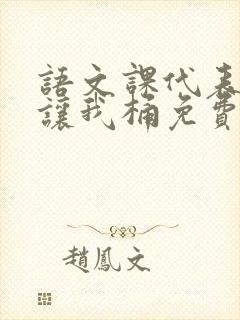 語文課代表
讓我桶免費
趙鳳文